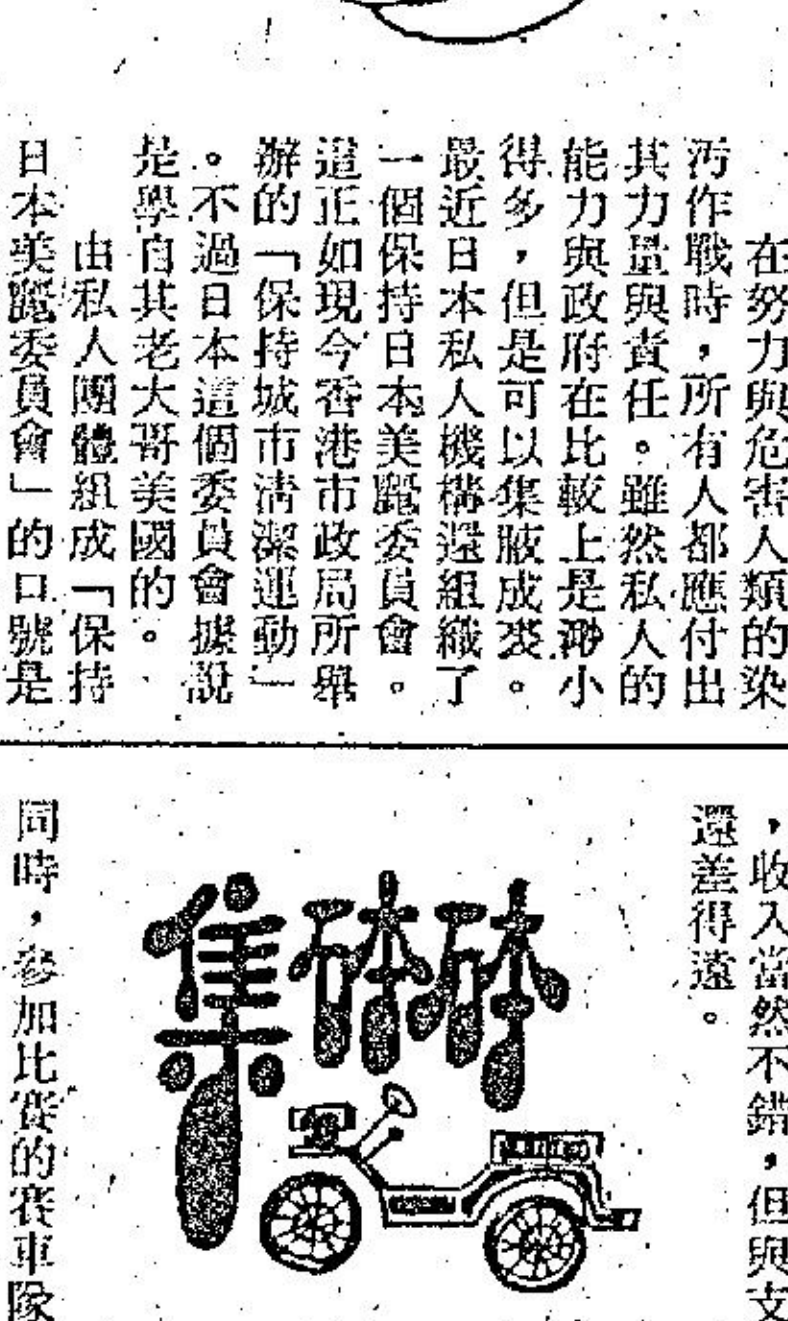 在努力與危害人類的染
污作戰時，所有人都應付出
其力量與責任。雖然私人的
能力與政府在比較上是渺小
得多，但是可以集腋成裘。
最近日本私人機構還組織了
一個保持日本美麗委員會。
這正如現今香港市政局所舉
辦的「保持城市清潔運動」
。不過日本這個委員會據說
是學自其老大哥美國的。
由私人團體組成「保持
日本美麗委員會」的口號是
，收入當然不錯，但與支
還差得遠。
砵砵集
同時，參加比賽的賽車隊